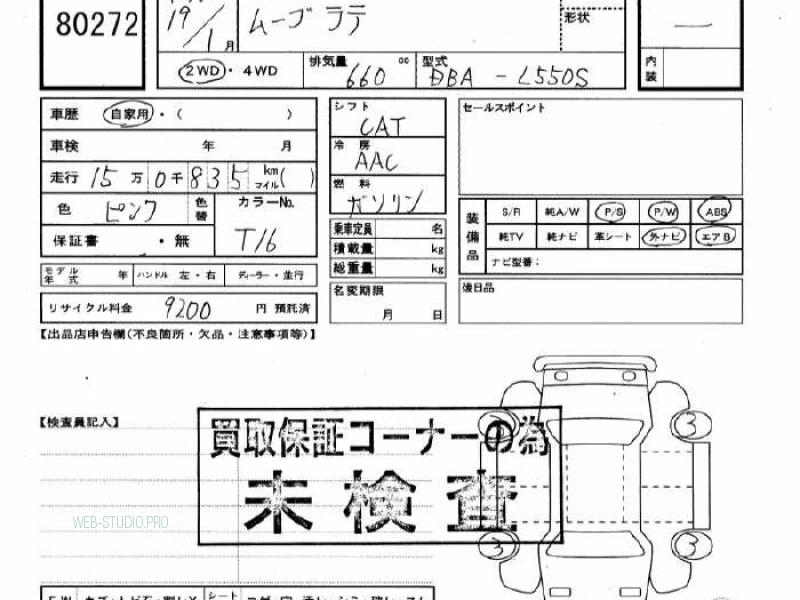 80272
19
1月
ムーヴラテ
形状
2WD・4WD
排気量 660 cc
型式 DBA - L550S
内装
車歴 自家用・( )
車検 年 月
走行 15万0千835 km マイル( )
色 ピンク
色替
カラーNo. T16
保証書 ・無
モデル年式 年
ハンドル 左・右
ディーラー・並行
リサイクル料金 9200 円 預託済
シフト CAT
冷房 AAC
燃料 ガソリン
乗車定員 名
積載量 kg
総重量 kg
名変期限
月 日
セールスポイント
装備品
S/R 純A/W P/S P/W ABS
純TV 純ナビ 革シート 外ナビ エアB
ナビ型番:
後日品
【出品店申告欄(不良箇所・欠品・注意事項等)】
【検査員記入】
買取保証コーナーの為
未検査
3
3
3
3
WEB-STUDIO.PRO